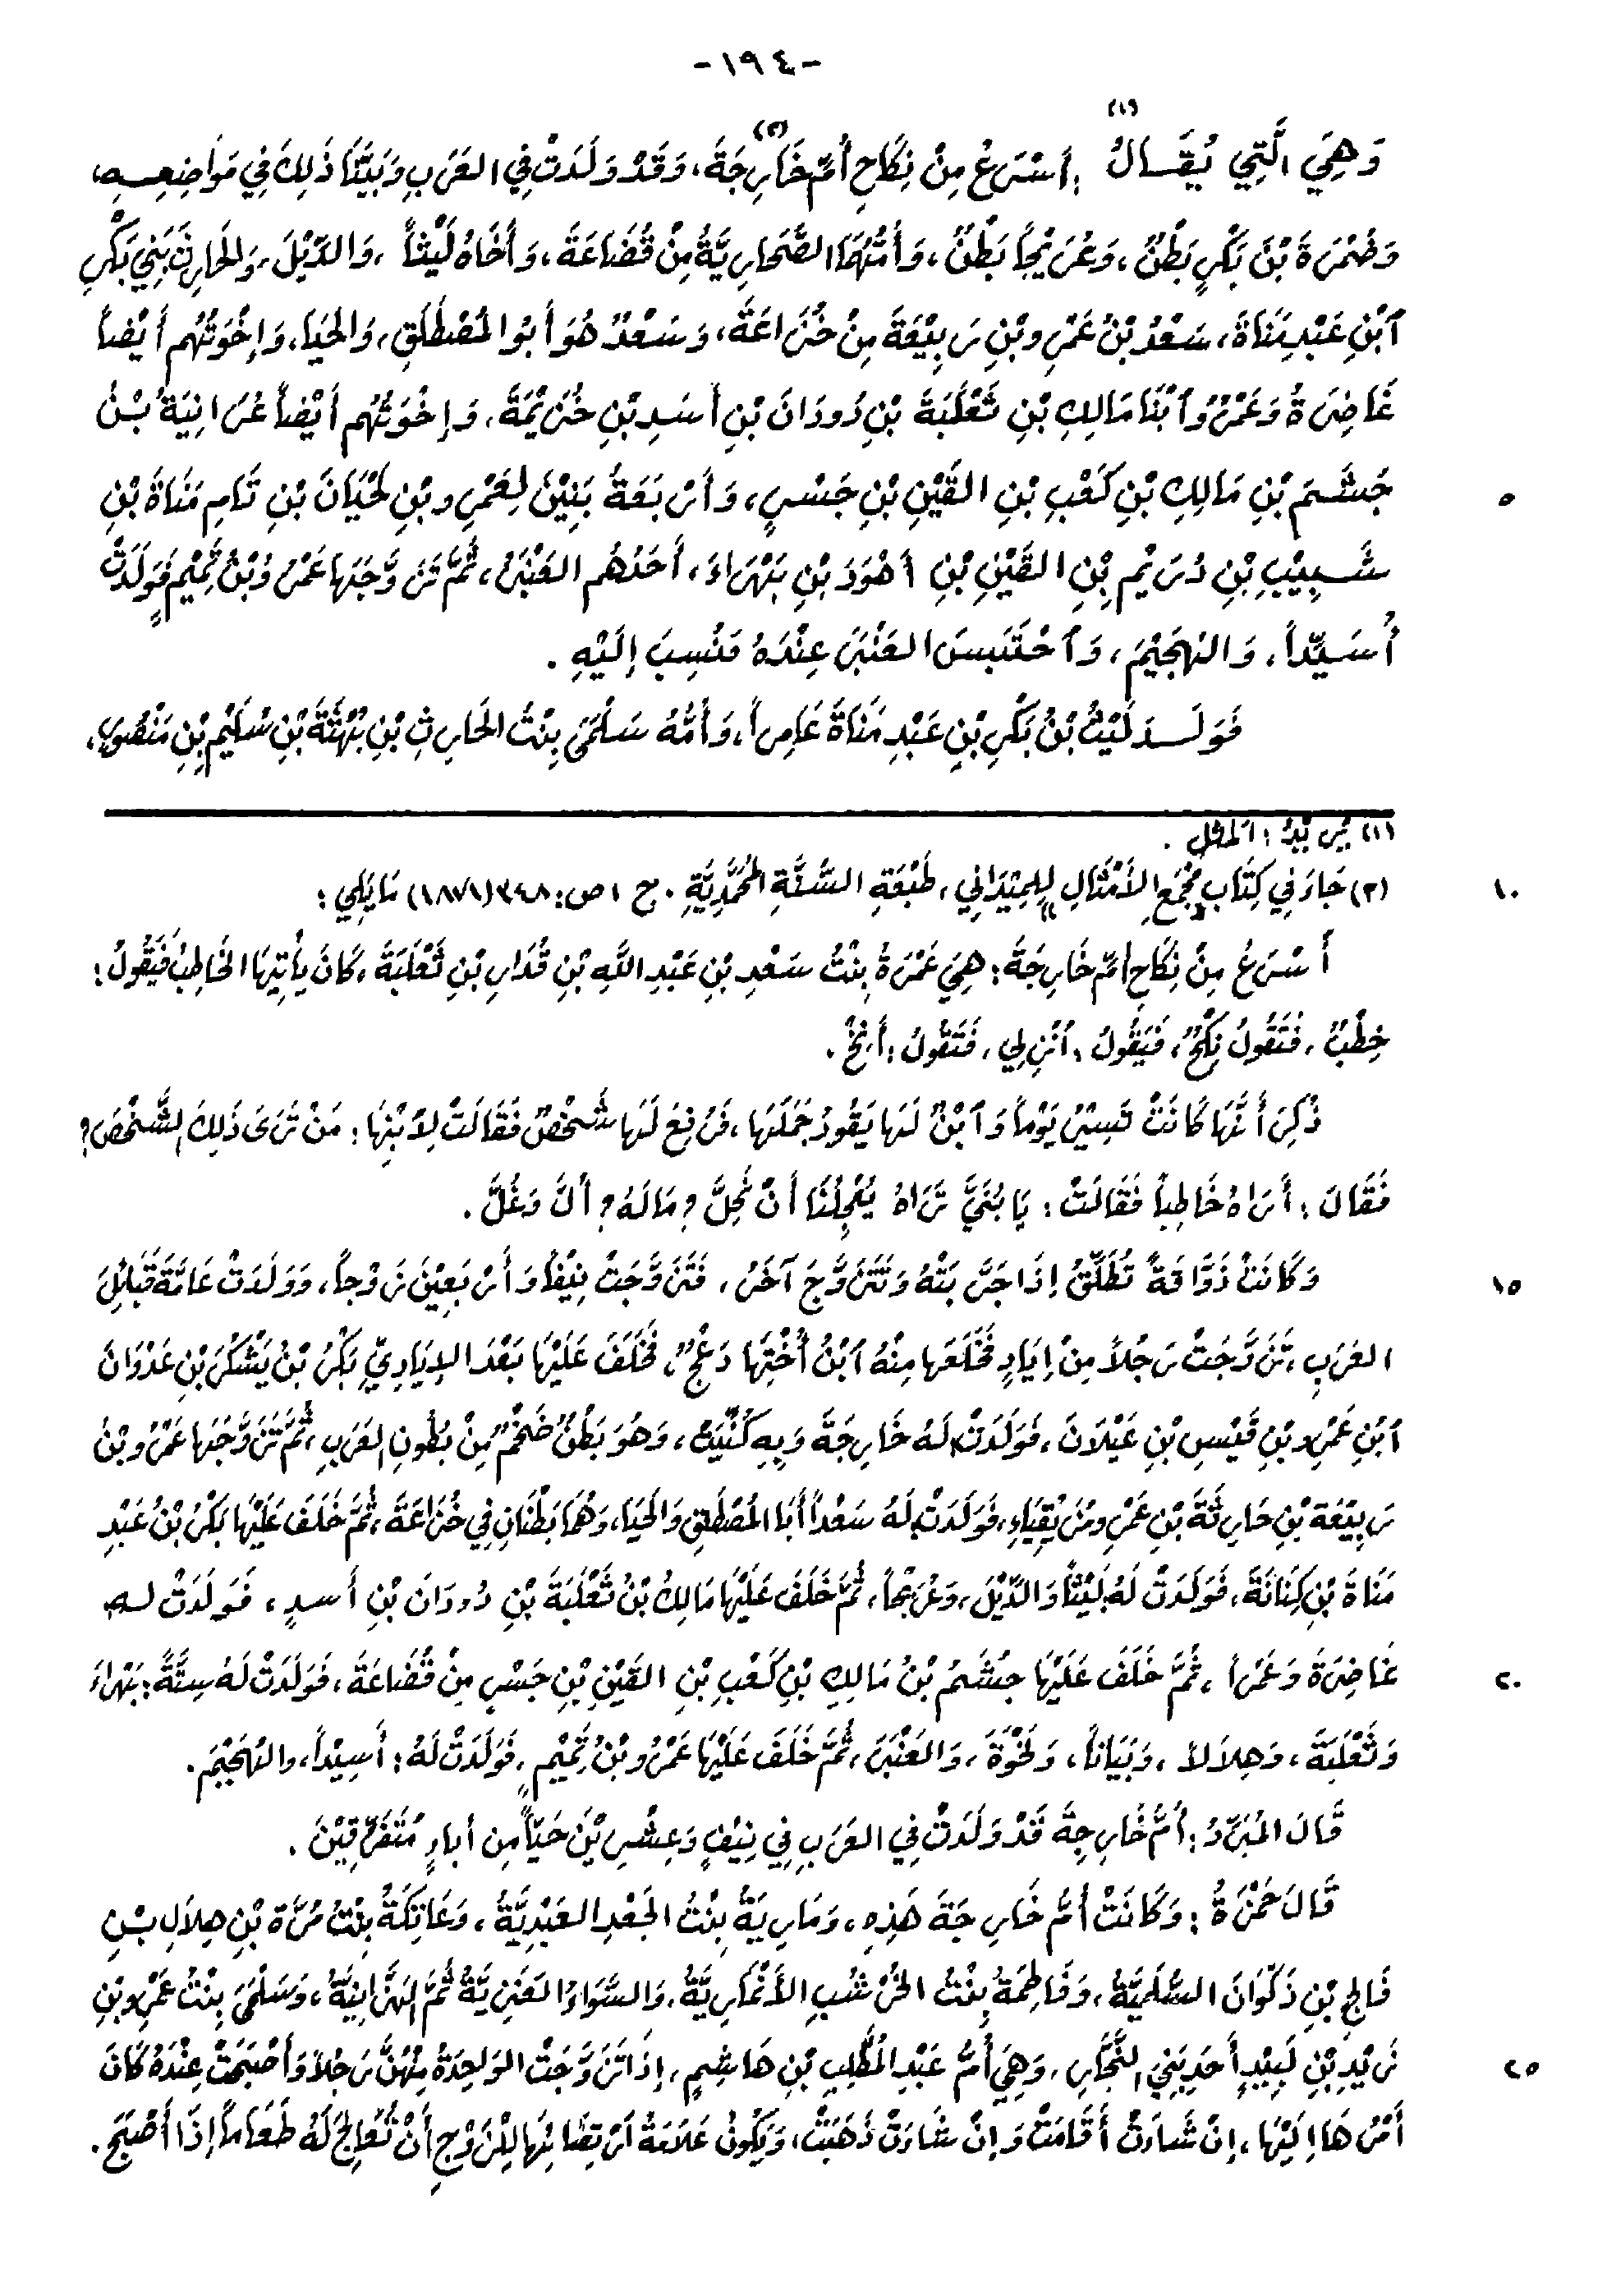 -١٩٤-
وَهِيَ الَّتِي يُقَالُ (١) : أَسْرَعُ مِنْ نِكَاحِ أُمِّ خَارِجَةَ (٢)، وَقَدْ وَلَدَتْ فِي العَرَبِ وَبَيَّنَّا ذَلِكَ فِي مَوَاضِعِهِ،
وَضَمْرَةَ بْنَ بَكْرٍ بَطْنٌ، وَعُرَيْجاً بَطْنٌ، وَأُمُّهُمَا الصَّحَارِيَّةُ مِنْ قُضَاعَةَ، وَأَخَاهُ لَيْثاً، وَالدِّيْلَ، وَالحَارِثَ بَنِي بَكْرِ
ٱبْنِ عَبْدِ مَنَاةَ، سَعْدُ بْنُ عَمْرِو بْنِ رَبِيْعَةَ مِنْ خُزَاعَةَ، وَسَعْدٌ هُوَ أَبُو المُصْطَلِقِ، وَالحَيَا، وَإِخْوَتُهُم أَيْضاً
غَاضِرَةُ وَعَمْرٌو ٱبْنَا مَالِكِ بْنِ ثَعْلَبَةَ بْنِ دُودَانَ بْنِ أَسَدِ بْنِ خُزَيْمَةَ، وَإِخْوَتُهُم أَيْضاً عُرَانِيَةُ بْنُ
جُشَمَ بْنِ مَالِكِ بْنِ كَعْبِ بْنِ القَيْنِ بْنِ جَسْرٍ، وَأَرْبَعَةُ بَنِيْنَ لِعَمْرِو بْنِ لَحْيَانَ بْنِ تَامِ مَنَاةَ بْنِ
٥
شَبِيْبِ بْنِ دُرَيْمِ بْنِ القَيْنِ بْنِ أَهْوَدَ بْنِ بَهْرَاءَ، أَحَدُهُم العَنْبَرُ، ثُمَّ تَزَوَّجَهَا عَمْرُو بْنُ تَمِيْمٍ فَوَلَدَتْ
أُسَيِّداً، وَالهُجَيْمَ، وَٱحْتَبَسَ العَنْبَرَ عِنْدَهُ فَنُسِبَ إِلَيْهِ .
فَوَلَدَ لَيْثُ بْنُ بَكْرِ بْنِ عَبْدِ مَنَاةَ عَامِراً، وَأُمُّهُ سَلْمَى بِنْتُ الحَارِثِ بْنِ بُهْثَةَ بْنِ سُلَيْمِ بْنِ مَنْصُورٍ،
(١) يُرِيْدُ : المَثَل .
(٢) جَاءَ فِي كِتَابِ «مَجْمَعِ الأَمْثَالِ» لِلمِيْدَانِي، طَبْعَةِ السُّنَّةِ المُحَمَّدِيَّةِ . ج ١ ص: ٣٤٨ (١٨٧١) مَا يَلِي :
١٠
أَسْرَعُ مِنْ نِكَاحِ أُمِّ خَارِجَةَ : هِيَ عَمْرَةُ بِنْتُ سَعْدِ بْنِ عَبْدِ اللَّهِ بْنِ قُدَارِ بْنِ ثَعْلَبَةَ، كَانَ يَأْتِيْهَا الخَاطِبُ فَيَقُولُ :
خِطْبٌ، فَتَقُولُ نِكْحٌ، فَيَقُولُ : ٱنْزِلِي، فَتَقُولُ : أَنِخْ .
ذُكِرَ أَنَّهَا كَانَتْ تَسِيْرُ يَوْماً وَٱبْنٌ لَهَا يَقُودُ جَمَلَهَا، فَرُفِعَ لَهَا شَخْصٌ فَقَالَتْ لِابْنِهَا : مَنْ تَرَى ذَلِكَ الشَّخْصَ؟
فَقَالَ : أَرَاهُ خَاطِباً فَقَالَتْ : يَا بُنَيَّ تَرَاهُ يُعْجِلُنَا أَنْ نَحِلَّ؟ مَا لَهُ؟ أُلَّ وَغُلَّ .
وَكَانَتْ ذَوَّاقَةً تُطَلِّقُ إِذَا جَرَّبَتْهُ وَتَتَزَوَّجَ آخَرَ، فَتَزَوَّجَتْ نَيِّفاً وَأَرْبَعِيْنَ زَوْجاً، وَوَلَدَتْ عَامَّةَ قَبَائِلِ
١٥
العَرَبِ، تَزَوَّجَتْ رَجُلاً مِنْ إِيَادٍ فَخَلَعَهَا مِنْهُ ٱبْنُ أُخْتِهَا دَعْجٌ، فَخَلَفَ عَلَيْهَا بَعْدَ الإِيَادِيِّ بَكْرُ بْنُ يَشْكُرَ بْنِ عَدْوَانَ
ٱبْنِ عَمْرِو بْنِ قَيْسِ بْنِ عَيْلَانَ، فَوَلَدَتْ لَهُ خَارِجَةَ وَبِهِ كُنِّيَتْ، وَهُوَ بَطْنٌ ضَخْمٌ مِنْ بُطُونِ العَرَبِ، ثُمَّ تَزَوَّجَهَا عَمْرُو بْنُ
رَبِيْعَةَ بْنِ حَارِثَةَ بْنِ عَمْرٍو مُزَيْقِيَاءِ، فَوَلَدَتْ لَهُ سَعْداً أَبَا المُصْطَلِقِ وَالحَيَا، وَهُمَا بَطْنَانِ فِي خُزَاعَةَ، ثُمَّ خَلَفَ عَلَيْهَا بَكْرُ بْنُ عَبْدِ
مَنَاةَ بْنِ كِنَانَةَ، فَوَلَدَتْ لَهُ لَيْثاً وَالدِّيْلَ، وَعُرَيْجاً، ثُمَّ خَلَفَ عَلَيْهَا مَالِكُ بْنُ ثَعْلَبَةَ بْنِ دُودَانَ بْنِ أَسدٍ، فَوَلَدَتْ لَهُ
غَاضِرَةَ وَعَمْراً، ثُمَّ خَلَفَ عَلَيْهَا جُشَمُ بْنُ مَالِكِ بْنِ كَعْبِ بْنِ القَيْنِ بْنِ جَسْرٍ مِنْ قُضَاعَةَ، فَوَلَدَتْ لَهُ سِتَّةً : بَهْرَاءَ
٢٠
وَثَعْلَبَةَ، وَهِلَالاً، وَبَيَاناً، وَلَخْوَةَ، وَالعَنْبَرَ، ثُمَّ خَلَفَ عَلَيْهَا عَمْرُو بْنُ تَمِيْمٍ، فَوَلَدَتْ لَهُ : أُسَيْداً، والهُجَيْمَ .
قَالَ المُبَرِّدُ : أُمُّ خَارِجَةَ قَدْ وَلَدَتْ فِي العَرَبِ فِي نَيِّفٍ وَعِشْرِيْنَ حَيّاً مِن أباءٍ مُتَفَرِّقِيْنَ .
قَالَ حَمْزَةُ : وَكَانَتْ أُمُّ خَارِجَةَ هَذِهِ، وَمَارِيَةُ بِنْتُ الجَعْدِ العَبْدِيَّةُ، وَعَاتِكَةُ بِنْتُ مُرَّةَ بْنِ هِلَالِ بْنِ
فَالِجِ بْنِ ذَكْوَانَ السُّلَمِيَّةُ، وَفَاطِمَةُ بِنْتُ الخُرْشُبِ الأَنْمَارِيَّةُ، وَالسَّوَاءُ العَنَزِيَّةُ ثُمَّ الهِزَّانِيَّةُ، وَسَلْمَى بِنْتُ عَمْرِو بْنِ
زَيْدِ بْنِ لَبِيْدٍ أَحَدِ بَنِي النَّجَّارِ، وَهِيَ أُمُّ عَبْدِ المُطَّلِبِ بْنِ هَاشِمٍ، إِذَا تَزَوَّجَتْ الوَاحِدَةُ مِنْهُنَّ رَجُلاً وَأَصْبَحَتْ عِنْدَهُ كَانَ
٢٥
أَمْرُهَا إِلَيْهَا، إِنْ شَاءَتْ أَقَامَتْ وَإِنْ شَاءَتْ ذَهَبَتْ، وَيَكُونُ عَلَامَةُ ٱرْتِضَائِهَا لِلزَّوْجِ أَنْ تُعَالِجَ لَهُ طَعَاماً إِذَا أَصْبَحَ .